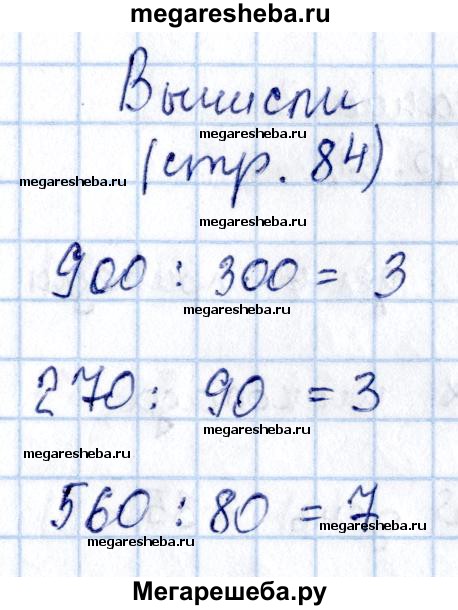 megaresheba.ru
Вычисли
megaresheba.ru
(стр. 84)
megaresheba.ru
megaresheba.ru
900 : 300 = 3
megaresheba.ru
270 : 90 = 3
megaresheba.ru
megaresheba.ru
560 : 80 = 7
megaresheba.ru
megaresheba.ru
Мегарешеба.ру